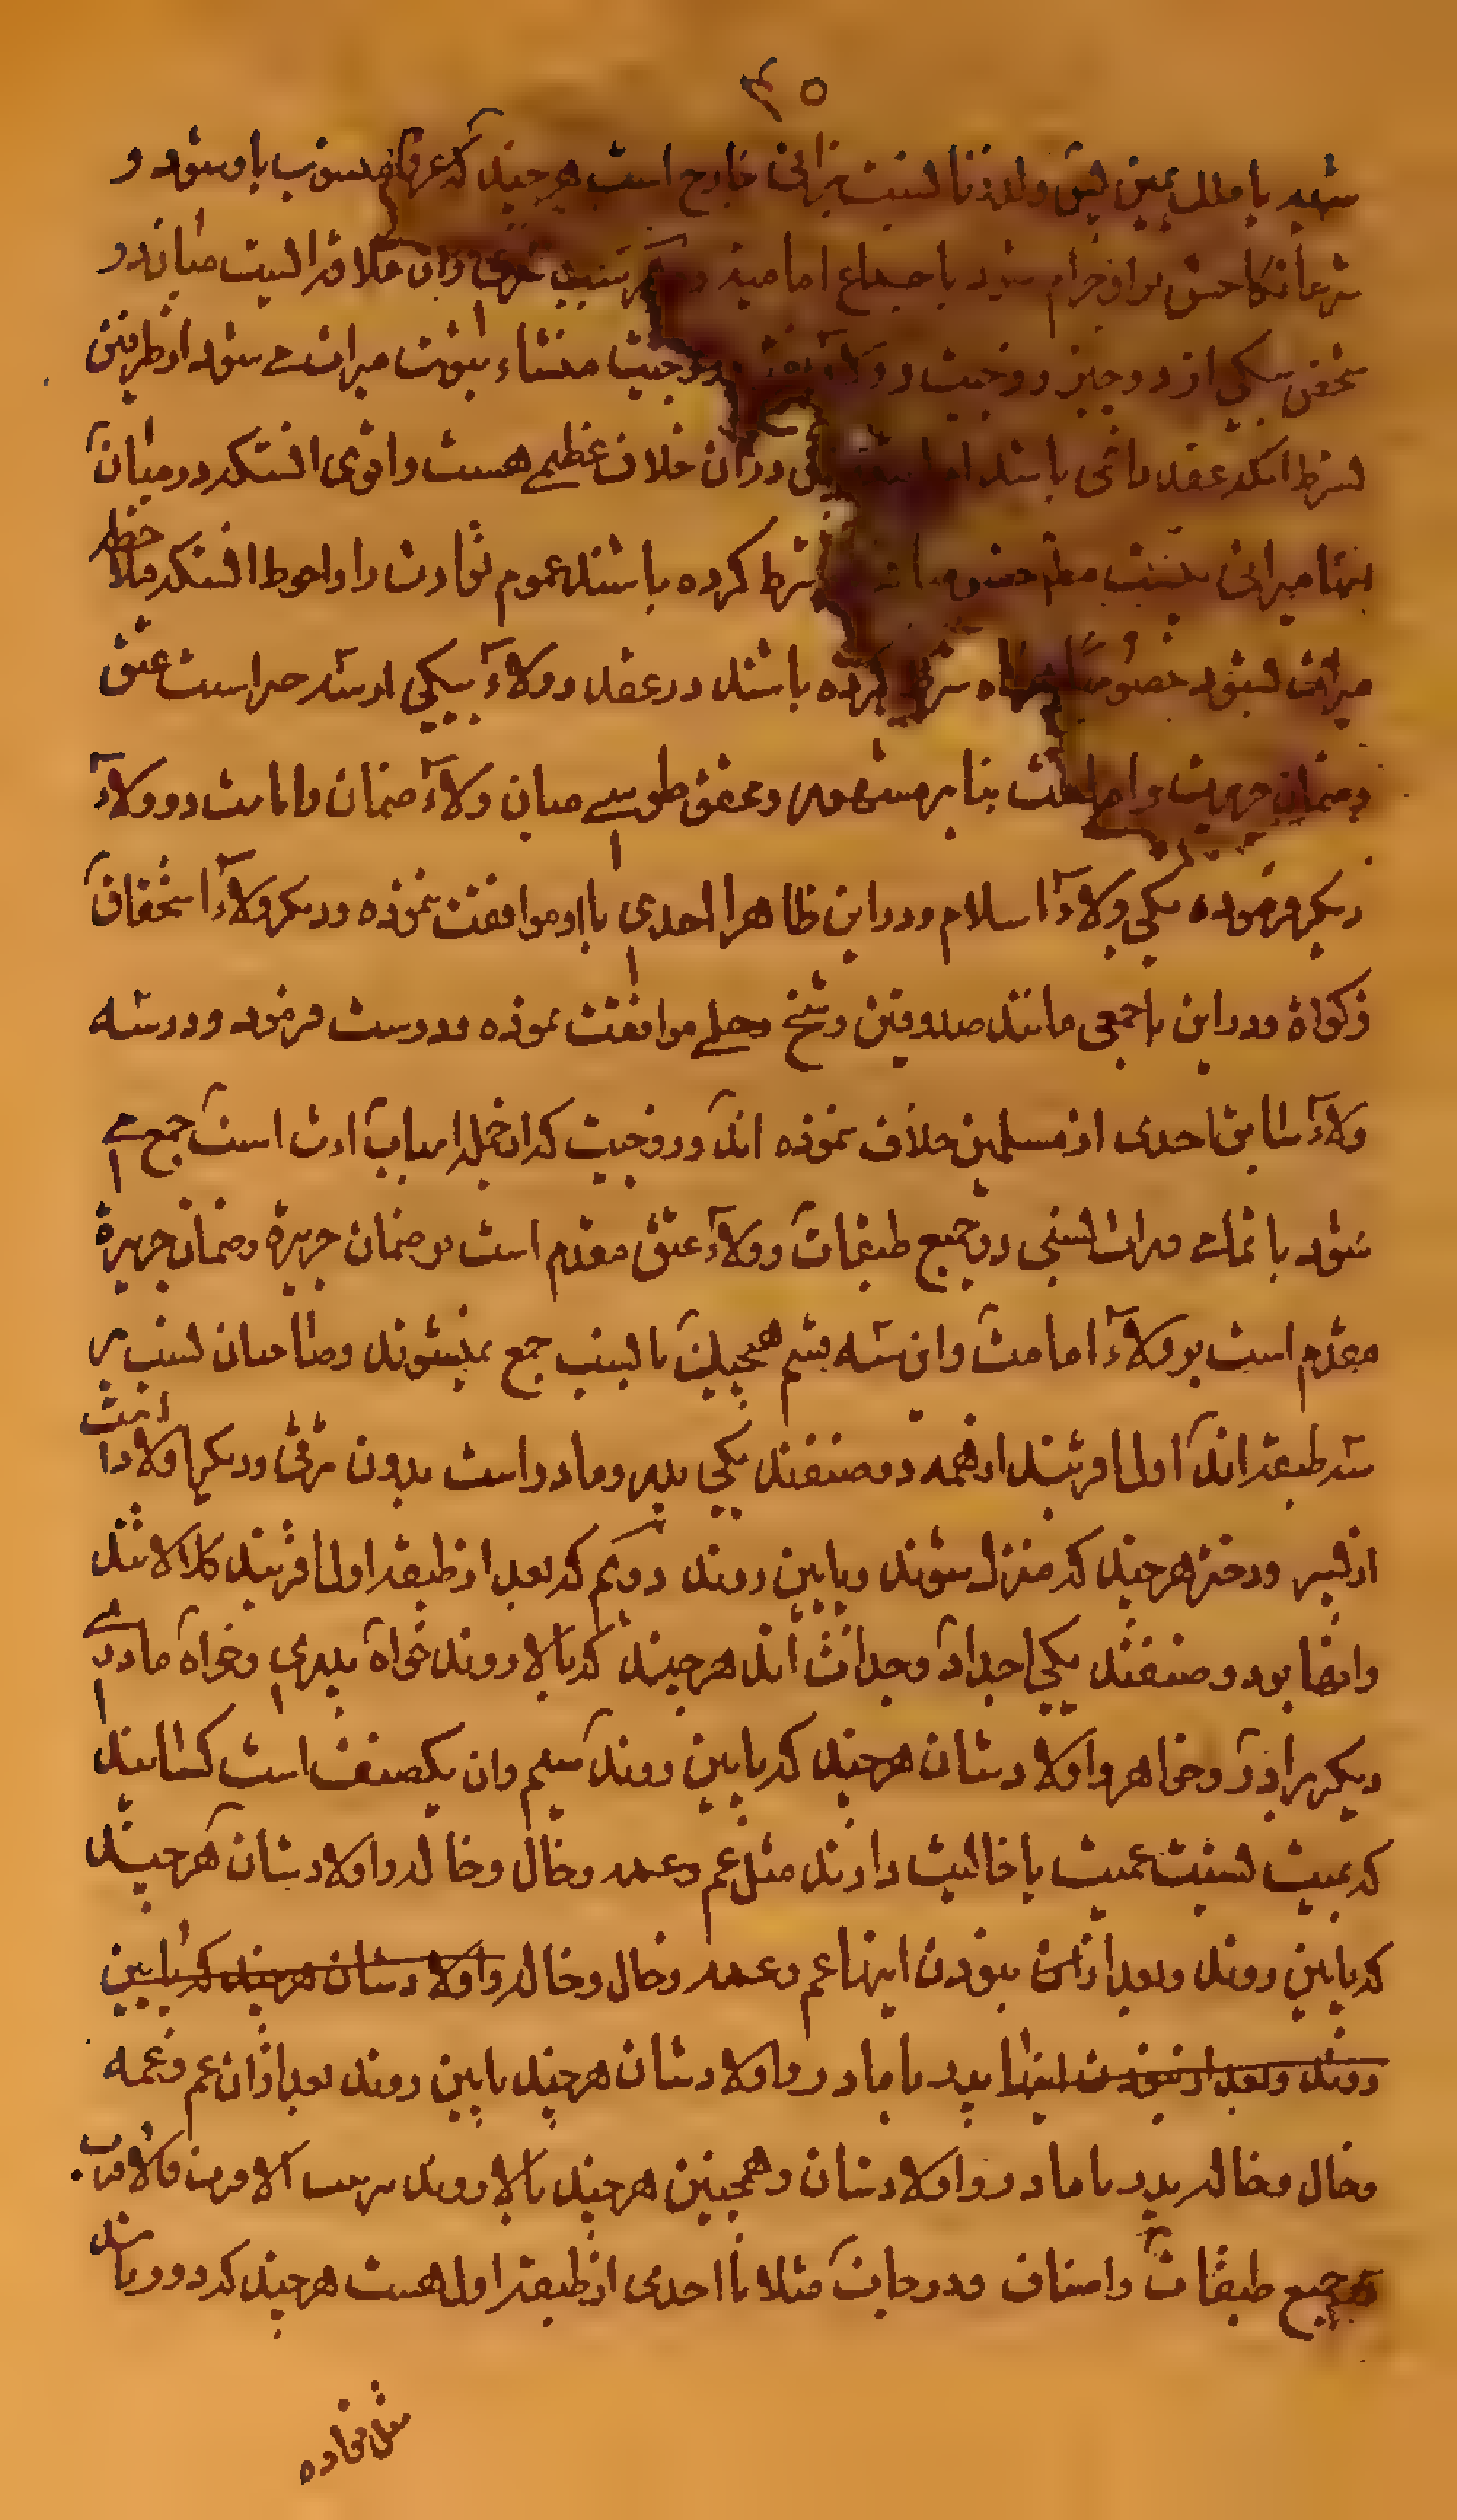 ۴۵
شبهه یا ملک یمین پس ولد زنا لنسبت میراثی خارج است هر چند که عرفا منسوب باو شود و
شرعا نکاحش بر او حرام شود باجماع امامیه و شرعی در ان علاقه الیست میانه دو
شخص یکی از دو چیز زوجیت و ولاء زوجیت منشاء ثبوت میراث می شود از طرفین
بشرط انکه عقد دائمی باشد اما در ان خلاف عظیمی هست و اقوی انستکه در میان
اینها میراثی نیست شرط کرده باشند عموم توارث را و احوط انستکه ملاحظه
میراث بشود خصوصا هرگاه شرط کرده باشند در عقد و ولاء یکی از سه چیز است عتق
و ضمان جریره و امامت بنا بر مشهور و محقق طوسی میان ولاء ضمان و امامت دو ولاء
دیگر فرموده یکی ولاء اسلام و در این ظاهرا احدی با او موافقت ننموده و دیگر ولاء استحقاق
زکوة و در این با جمعی مانند صدوقین و شیخ و حلی موافقت نموده و درست فرموده و در سه
ولاء سابق احدی از مسلمین خلاف ننموده اند و زوجیت که از جمله اسباب ارث است جمع می
شود با تمامی میراث نسبی در جمیع طبقات و ولاء عتق مقدم است بر ضمان جریرة و ضمان جریرة
مقدم است بر ولاء امامت و این سه قسم هیچیک با نسب جمع نمیشوند و صاحبان نسب بر
سه طبقه اند اول اقربند از همه دو صنفند یکی پدر و مادر است بدون ترقی و دیگر اولاد است
از پسر و دختر هر چند که منزل شوند و پایین روند دویم که بعد از طبقه اول اقربند کلاله اند
و انها بر دو صنفند یکی اجداد و جدات اند هر چند که بالا روند خواه پدری و خواه مادری
دیگر برادر و خواهر و اولادشان هر چند که پایین روند سیم و ان یکصنف است کسانیند
که بمیت نسبت عمیت یا خالیت دارند مثل عم و عمه و خال و خاله و اولادشان هر چند
که پایین روند و بعد از نبودن اینها عم و عمه و خال و خاله و اولادشان هر چند که پایین
روند و بعد از نبودن اینها پدر یا مادر و اولادشان هر چند پایین روند بعد از ان عم و عمه
و خال و خاله پدر یا مادر و اولادشان و همچنین هر چند بالا روند بترتیب الاقرب فالاقرب
در جمیع طبقات و اصناف و درجات مثلا تا احدی از طبقه اول هست هر چند که دور باشد
مثل نواده